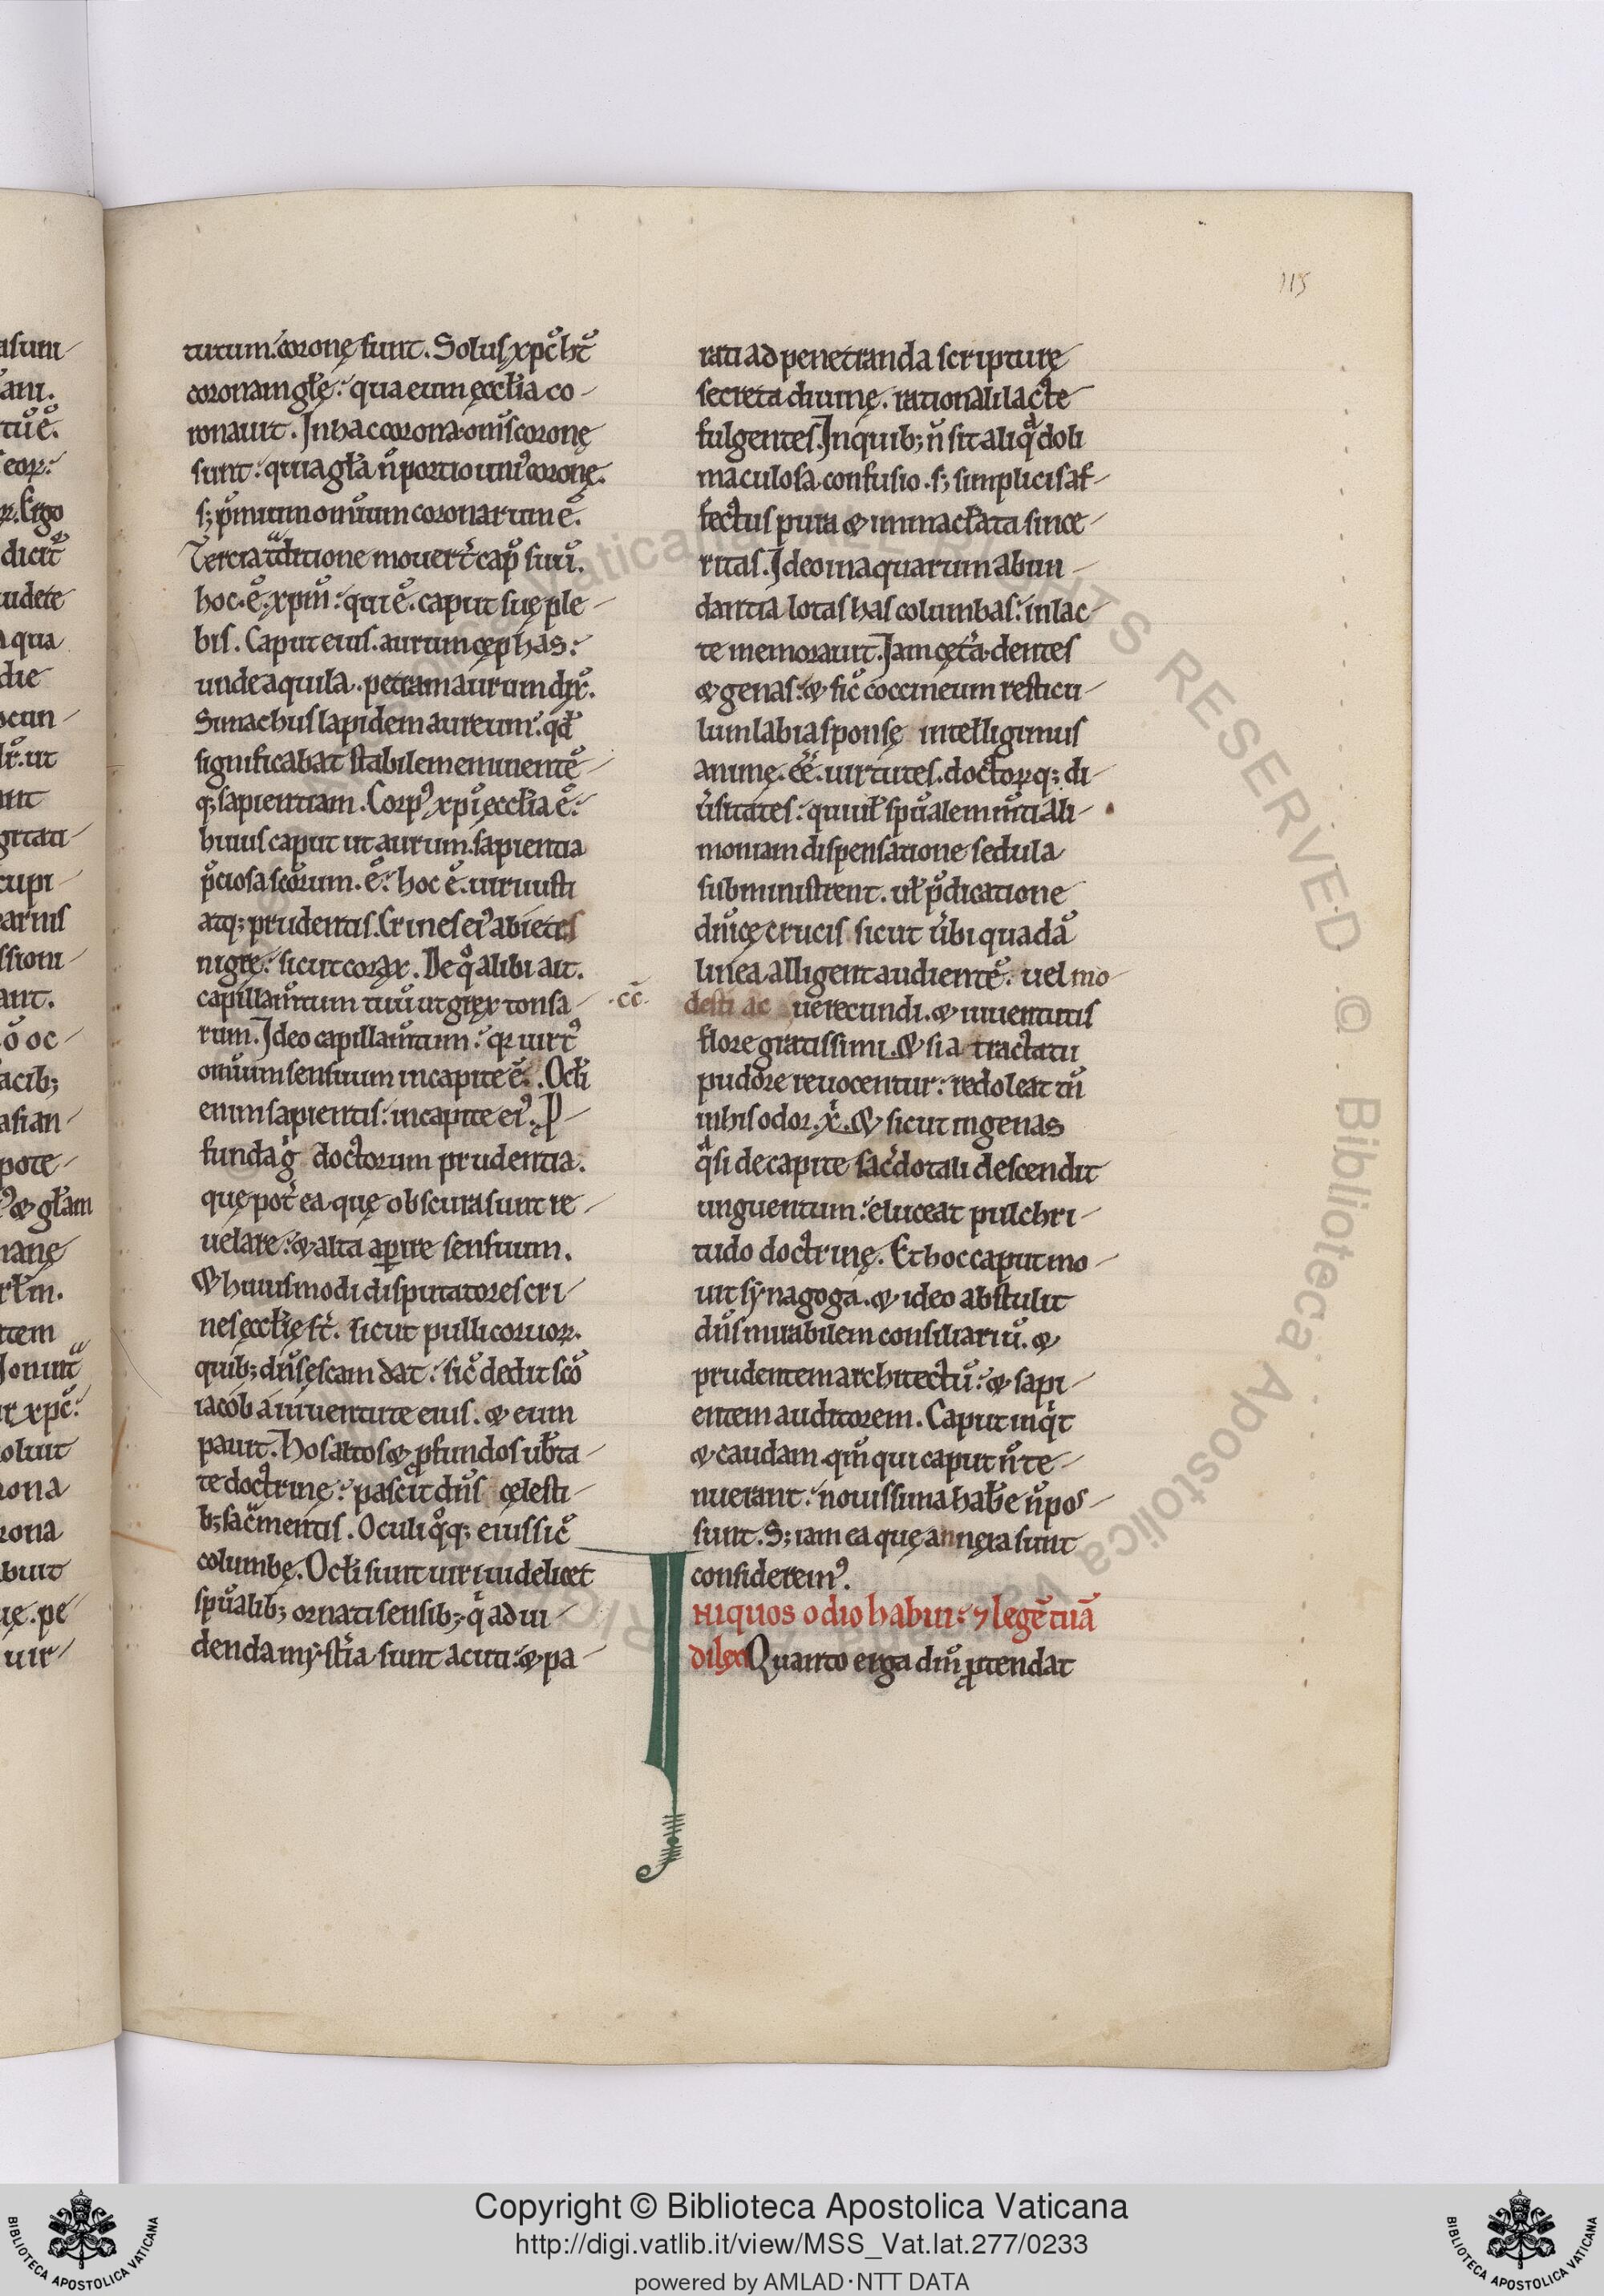 115
tutum: coronę sunt. Solus xpc̄ ht̄
coronam glę: qua eum ęccl̄ia co-
ronauit. In hac corona om̄s coronę
sunt: quia gl̄a n̄ portio uni᾽ coronę.
s; p̄mium omnium coronarum ē.
Tercia t̄ditione mouer̄t cap̄ suū.
hoc .ē. xpm̄: qui ē. caput suę ple-
bis. Caput eius. aurum cephas:
unde aquila. petram aurum dix̄.
Simachus lapidem aureum: qd̄
significabat stabilem eminentē
q; sapientiam. Corp᾽ xpī ęccl̄ia ē:
huius caput ut aurum. sapientia
p̄ciosa sc̄orum. ē: hoc ē. uiri iusti
atq; prudentis. Crines ei᾽ abietes
nigrę: sicut corax. De qͦ alibi ait.
capillam̄tum tuū ut grex tonsa-
rum. Ideo capillam̄tum: qr uirt᾽
omium sensuum in capite ē. Ocl̄i
enim sapientis: in capite ei᾽. P-
funda g̊ doctorum prudentia.
quę pot̄ ea quę obscura sunt re-
uelare: & alta aperire sensuum.
Et huiusmodi disputatores cri-
nes ęccl̄ię st̄. sicut pulli coruoꝝ.
quib; dn̄s escam dat: sic̄ dedit sc̄o
iacob a iuuentute eius. & eum
pauit. Hos altos & ꝓfundos ub̄ta-
te doctrinę: pascit dn̄s cęlesti-
b; sac̄mentis. Oculi qͦq; eius sic̄
columbę. Ocl̄i sunt uiri uidelicet
spūalib; ornati sensib;. qͥ ad ui-
denda myst̄ia sunt acuti: & pa-
rati ad penetranda scripturę
secreta diuinę. rationali lacte
fulgentes. In quib; n̄ sit aliqͣ doli
maculosa confusio. s; simplicis af-
fectus pura & immacl̄ata since-
ritas. Ideo in aquarum abun-
dantia lotas has columbas: in lac-
te memorauit. Iam cęt̄a. dentes
& genas: & sic̄ coccineum resticu-
lum labia sponsę intelligimus
animę. ēē. uirtutes. doctoꝝq; di-
ūsitates: qui uil̄ spūalem mūti ali-
moniam dispensatione sedula
subministrent. ul̄ p̄dicatione
dn̄icę crucis sicut ūbi quadā
linea alligent audientē. uel mo
.cc̄. desti ac uerecundi. & iuuentutis
flore gratissimi. Et si a tractatu
pudore reuocentur: redoleat tn̄
in his odor. x̄. Et sicut in genas
qͣsi de capite sac̄dotali descendit
unguentum: eluceat pulchri-
tudo doctrinę. Et hoc caput mo-
uit synagoga. & ideo abstulit
dn̄s mirabilem consiliariū. &
prudentem architectū: & sapi-
entem auditorem. Caput inqͥt
& caudam. qm̄ qui caput n̄ te-
nuerant: nouissima habe n̄ pos-
sunt. S; iam ea quę annexa sunt
considerem᾽.
INiquos odio habui: ⁊ legē tuā
dilexi Quanto erga dn̄m ꝓtendat
Copyright © Biblioteca Apostolica Vaticana
http://digi.vatlib.it/view/MSS_Vat.lat.277/0233
powered by AMLAD·NTT DATA